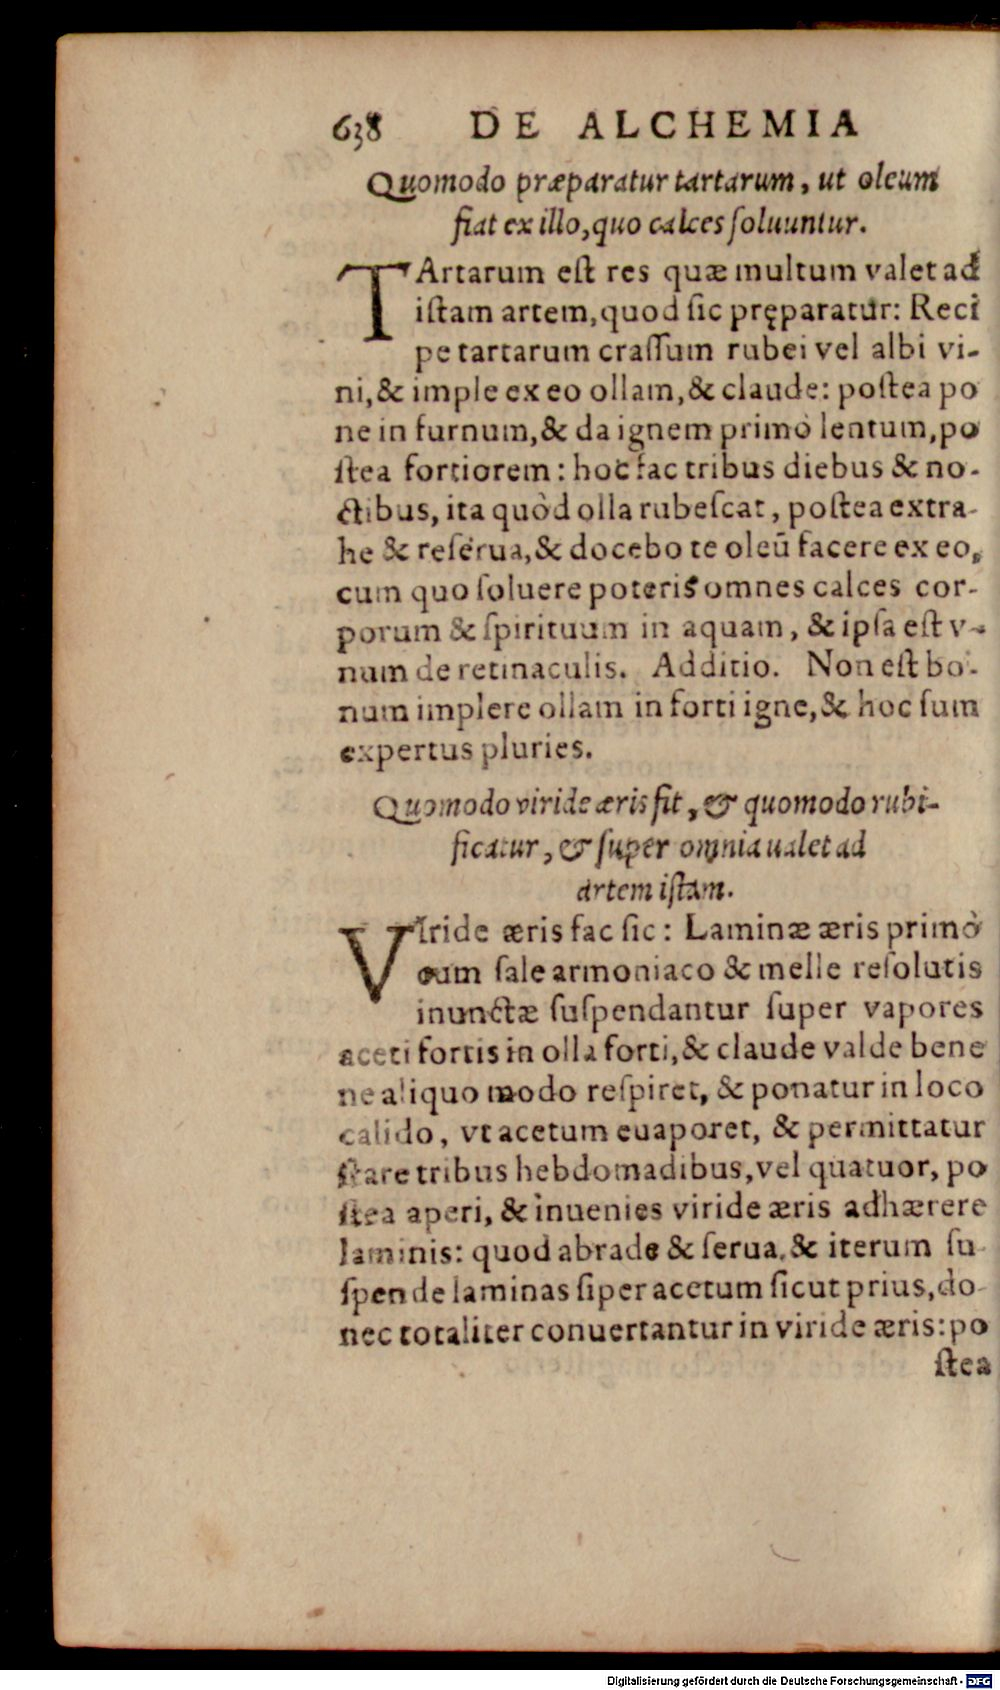 638 DE ALCHEMIA
Quomodo præparatur tartarum, ut oleum
fiat ex illo, quo calces ſoluuntur.
TArtarum eſt res quæ multum valet ad
iſtam artem, quod ſic pręparatur: Reci
pe tartarum craſſum rubei vel albi vi-
ni, & imple ex eo ollam, & claude: poſtea po
ne in furnum, & da ignem primò lentum, po
ſtea fortiorem: hoc fac tribus diebus & no-
ctibus, ita quòd olla rubeſcat, poſtea extra-
he & reſerua, & docebo te oleū facere ex eo,
cum quo ſoluere poteris omnes calces cor-
porum & ſpirituum in aquam, & ipſa eſt v-
num de retinaculis. Additio. Non eſt bo-
num implere ollam in forti igne, & hoc ſum
expertus pluries.
Quomodo viride æris fit, & quomodo rubi-
ficatur, & ſuper omnia ualet ad
artem iſtam.
VIride æris fac ſic: Laminæ æris primò
cum ſale armoniaco & melle reſolutis
inunctæ ſuſpendantur ſuper vapores
aceti fortis in olla forti, & claude valde bene
ne aliquo modo reſpiret, & ponatur in loco
calido, vt acetum euaporet, & permittatur
ſtare tribus hebdomadibus, vel quatuor, po
ſtea aperi, & inuenies viride æris adhærere
laminis: quod abrade & ſerua, & iterum ſu-
ſpende laminas ſiper acetum ſicut prius, do-
nec totaliter conuertantur in viride æris: po
ſtea
Digitalisierung gefördert durch die Deutsche Forschungsgemeinschaft - DFG